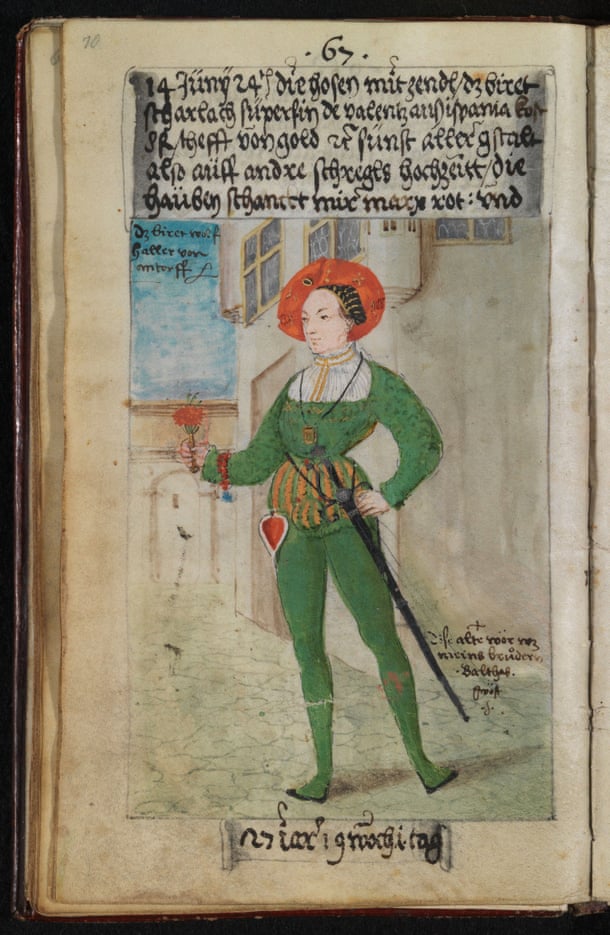 70
· 67 ·
14 Jŭnÿ 24 die hosen mit zendl dz biret
scharlach sŭperfin de valentz aus ispania kost
von gold sŭnst aller gstalt
also aŭff andre schregls hochzeitt die
haŭben schanckt mir marx rot: vnd
dz biret wolf
haller von
antorff
Dise alte wör was
meins brŭders
· Balthas.
gwöst
27 iar 19 woch 1 tag